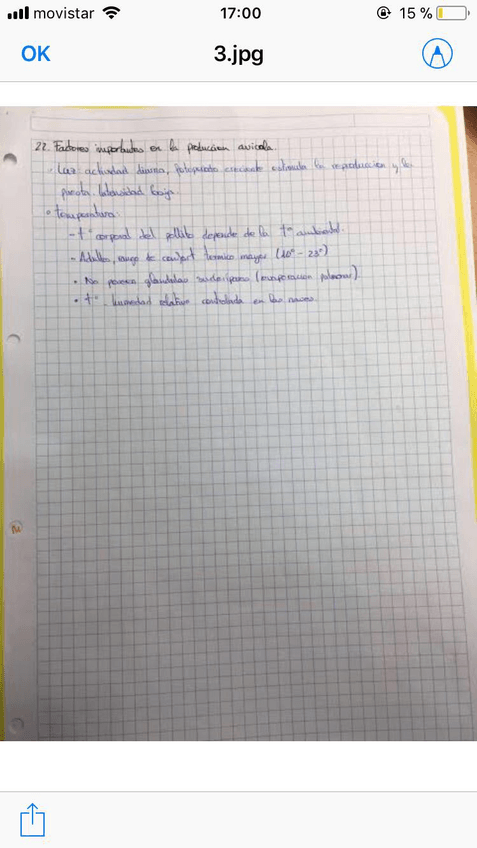 movistar 17:00 15 %
OK 3.jpg
22. Factores importantes en la producción avícola.
· Luz: actividad diurna, fotoperiodo creciente estimula la reproducción y la
puesta. Intensidad baja.
· Temperatura:
- tª corporal del pollito depende de la tª ambiental.
- Adultos, rango de confort térmico mayor (10° - 23°)
· No poseen glándulas sudoríparas (evaporación pulmonar)
· tª - humedad relativa controlada en las naves.